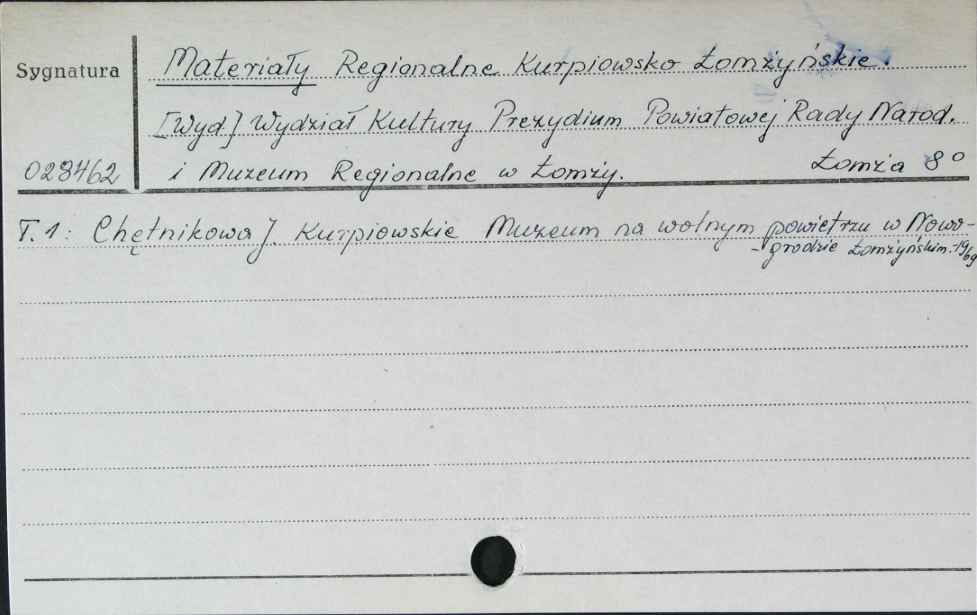 Sygnatura
Materiały Regionalne Kurpiowsko Łomżyńskie.
[Wyd] Wydział Kultury Prezydium Powiatowej Rady Narod.
028462 i Muzeum Regionalne w Łomży. Łomża 8°
T. 1: Chętnikowa J. Kurpiowskie Muzeum na wolnym powietrzu w Nowo-
-grodzie Łomżyńskim. 19/69